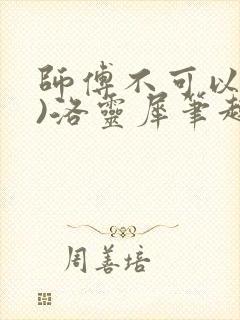 師傅不可以
)洛靈犀筆趣
周善培